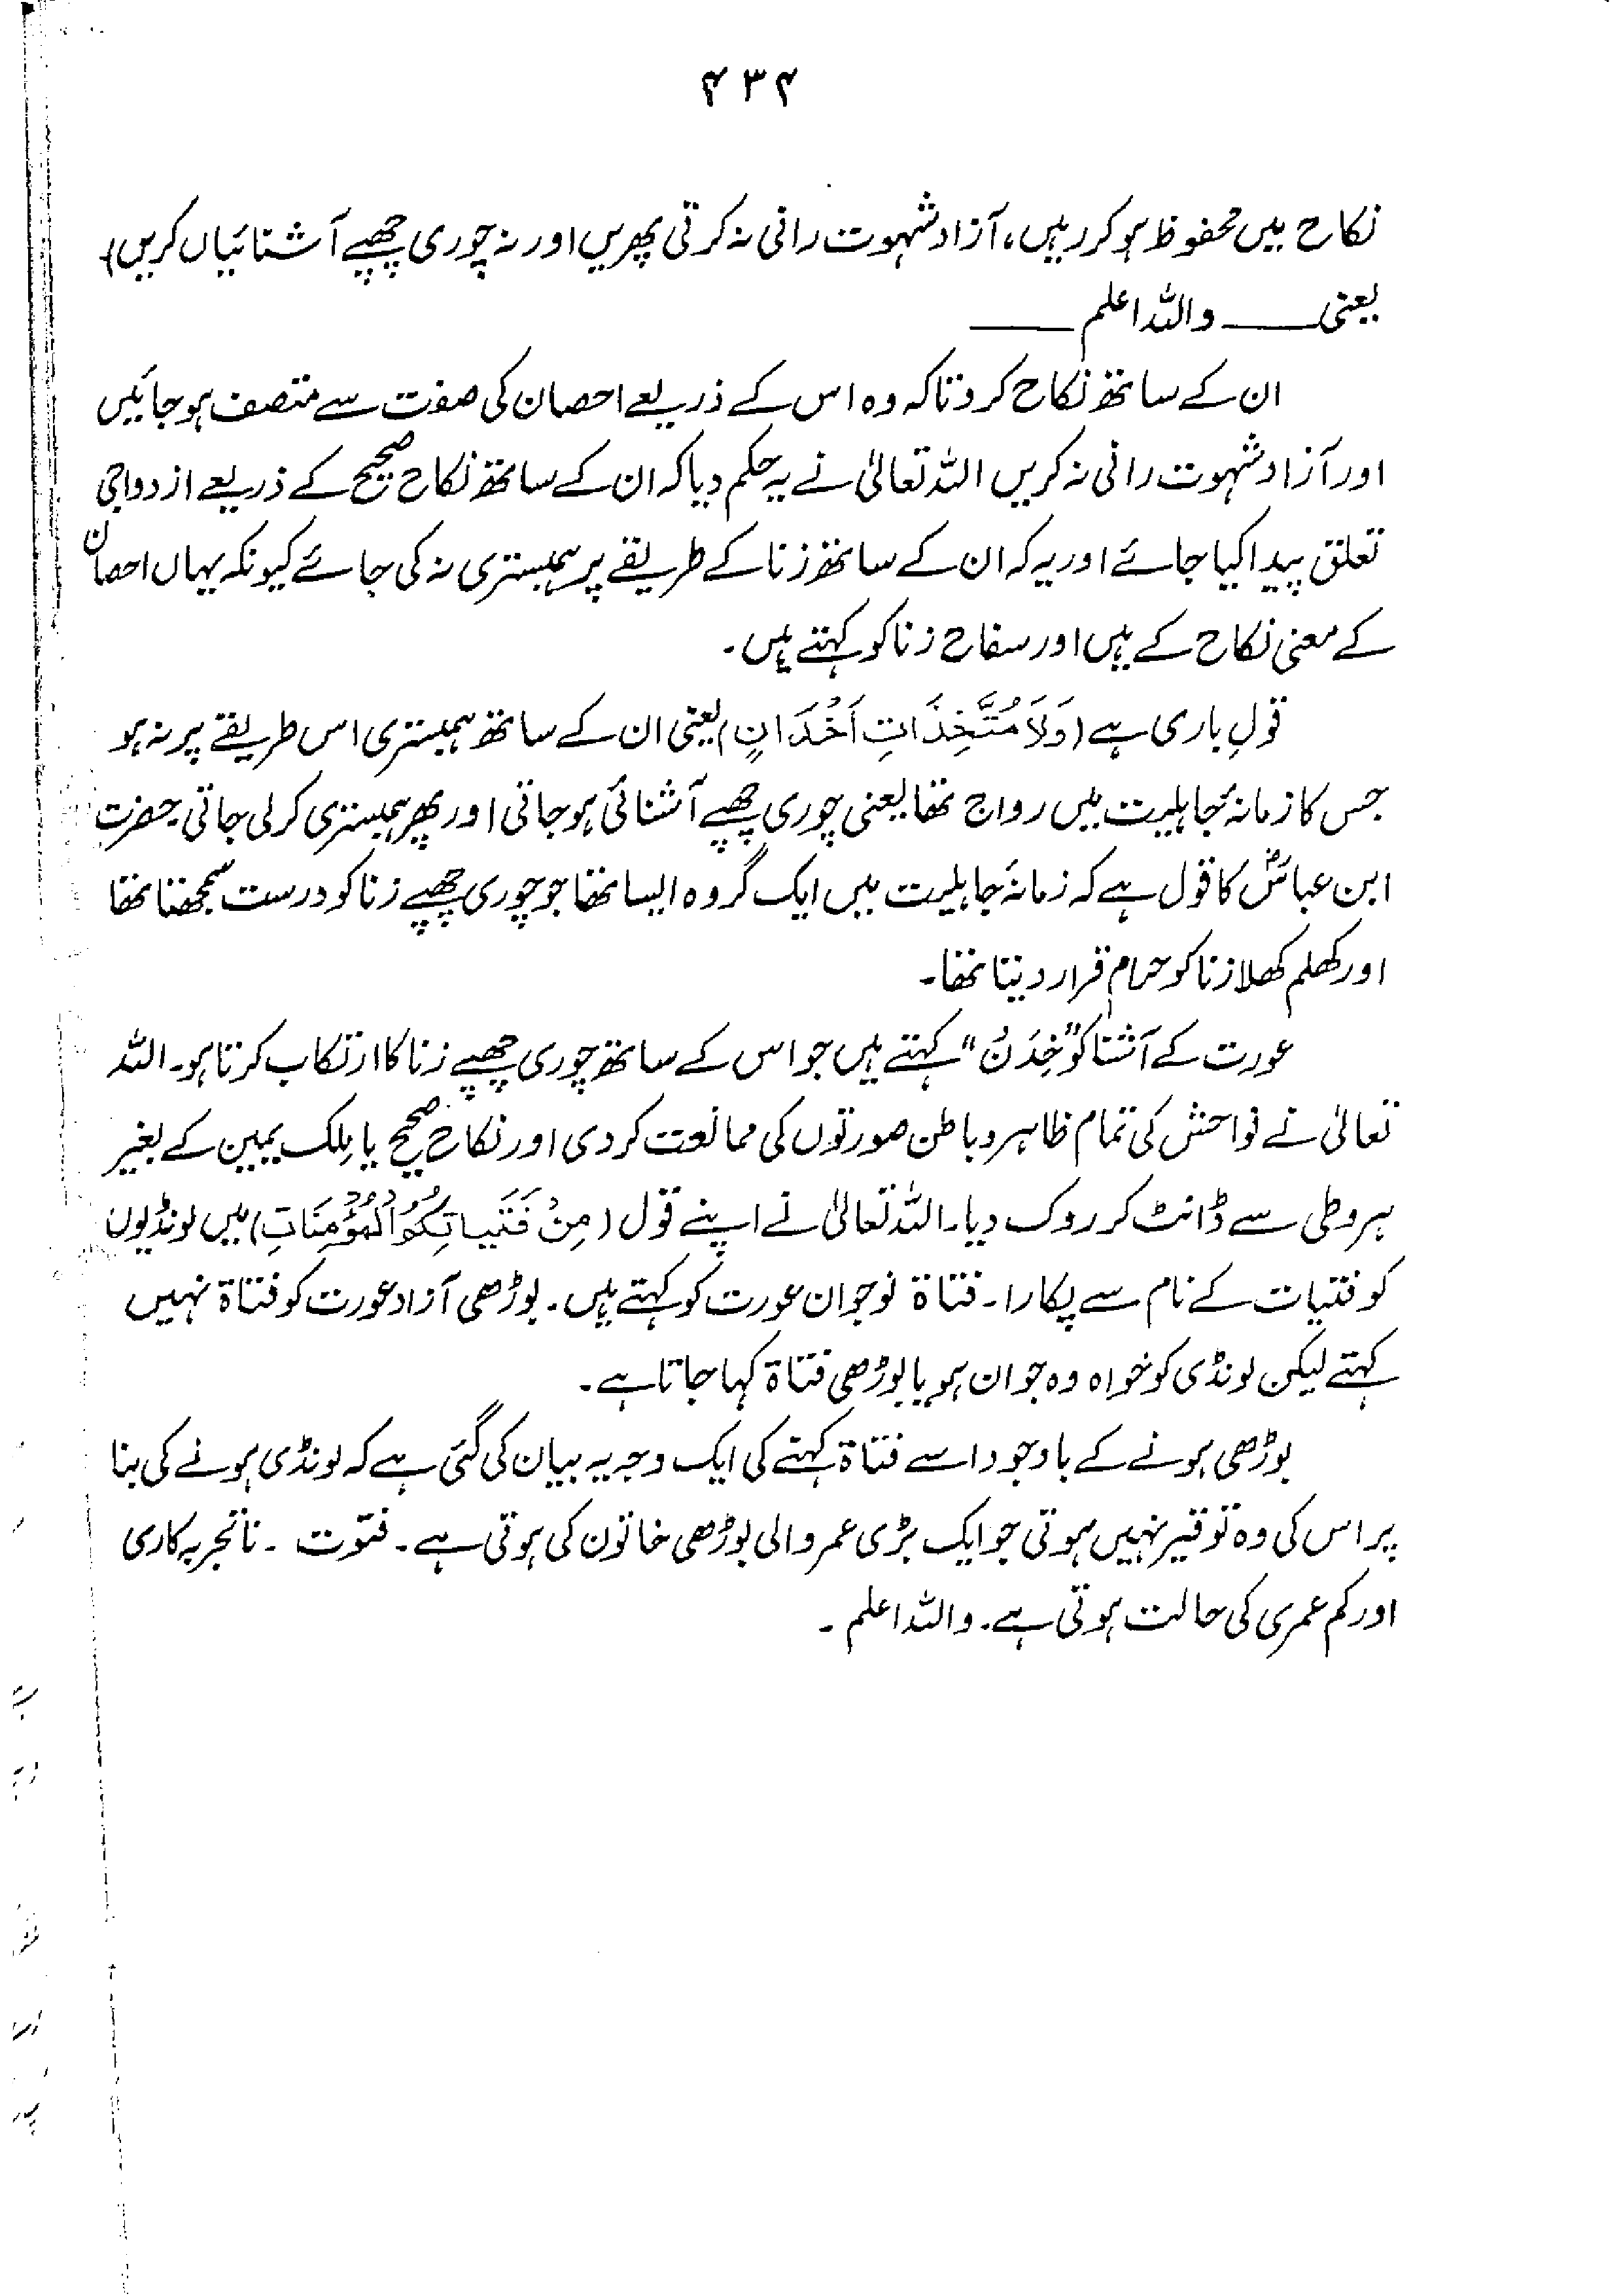 ۴۳۴
نکاح میں محفوظ ہو کر رہیں، آزاد شہوت رانی نہ کرتی پھریں اور نہ چوری چھپے آشنائیاں کریں)
یعنی ـــــ واللہ اعلم ـــــ
ان کے ساتھ نکاح کرو تاکہ وہ اس کے ذریعے احصان کی صفت سے متصف ہو جائیں
اور آزاد شہوت رانی نہ کریں اللہ تعالیٰ نے یہ حکم دیا کہ ان کے ساتھ نکاح صحیح کے ذریعے ازدواجی
تعلق پیدا کیا جائے اور یہ کہ ان کے ساتھ زنا کے طریقے پر ہمبستری نہ کی جائے کیونکہ یہاں احصان
کے معنی نکاح کے ہیں اور سفاح زنا کو کہتے ہیں۔
قولِ باری ہے (وَلَا مُتَّخِذَاتِ اَخْدَانٍ) یعنی ان کے ساتھ ہمبستری اس طریقے پر نہ ہو
جس کا زمانۂ جاہلیت میں رواج تھا یعنی چوری چھپے آشنائی ہو جاتی اور پھر ہمبستری کرلی جاتی۔ حضرت
ابن عباسؓ کا قول ہے کہ زمانۂ جاہلیت میں ایک گروہ ایسا تھا جو چوری چھپے زنا کو درست سمجھتا تھا
اور کھلم کھلا زنا کو حرام قرار دیتا تھا۔
عورت کے آشنا کو "خِدَنُ" کہتے ہیں جو اس کے ساتھ چوری چھپے زنا کا ارتکاب کرتا ہو۔ اللہ
تعالیٰ نے فواحش کی تمام ظاہر و باطن صورتوں کی ممانعت کر دی اور نکاح صحیح یا مِلک یمین کے بغیر
ہر وطی سے ڈانٹ کر روک دیا۔ اللہ تعالیٰ نے اپنے قول (مِنْ فَتَيَاتِكُمُ الْمُؤْمِنَاتِ) میں لونڈیوں
کو فتیات کے نام سے پکارا۔ فتاۃ نوجوان عورت کو کہتے ہیں۔ بوڑھی آزاد عورت کو فتاۃ نہیں
کہتے لیکن لونڈی کو خواہ وہ جوان ہو یا بوڑھی فتاۃ کہا جاتا ہے۔
بوڑھی ہونے کے باوجود اسے فتاۃ کہنے کی ایک وجہ یہ بیان کی گئی ہے کہ لونڈی ہونے کی بنا
پر اس کی وہ توقیر نہیں ہوتی جو ایک بڑی عمر والی بوڑھی خاتون کی ہوتی ہے۔ فتوّت ۔ ناتجربہ کاری
اور کم عمری کی حالت ہوتی ہے۔ واللہ اعلم ۔